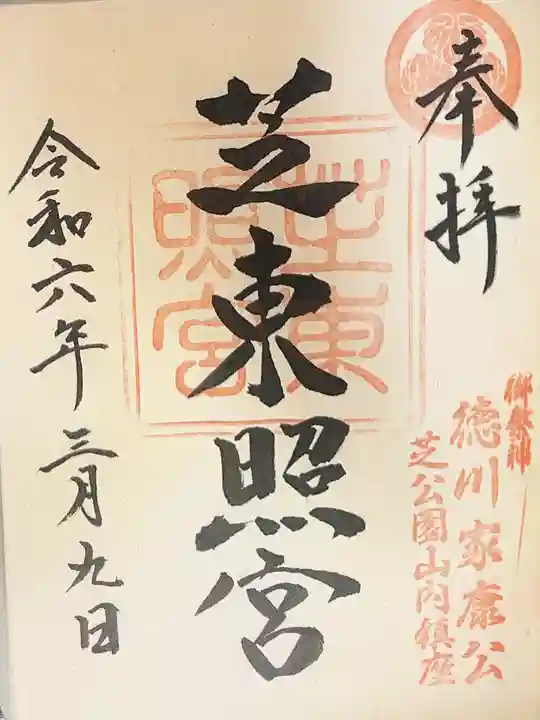 奉拝
御祭神
徳川家康公
芝公園山内鎮座
芝東照宮
芝東照宮
令和六年三月九日